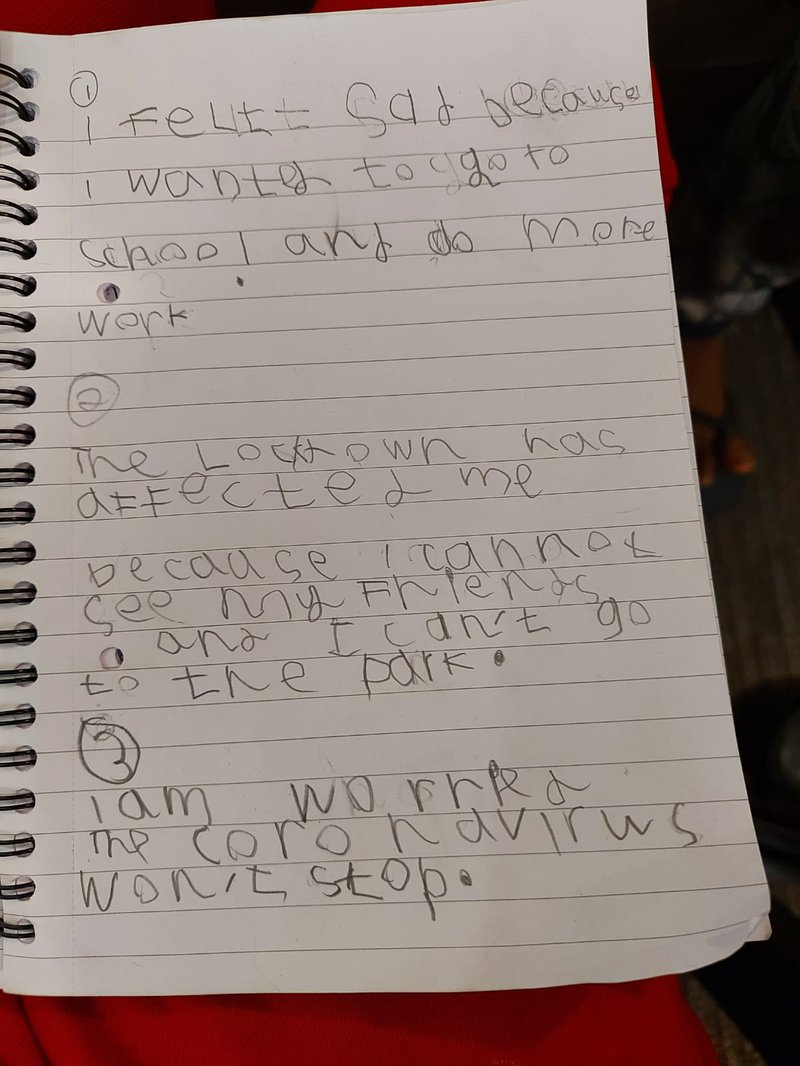 ①
I FeLtt Sad because
i wanted to go to
school and do more
work
②
The Lockdown has
aFFected me
because i cannot
see my Friends
and I can't go
to the park.
③
i am worrked
the coronavirus
won't stop.